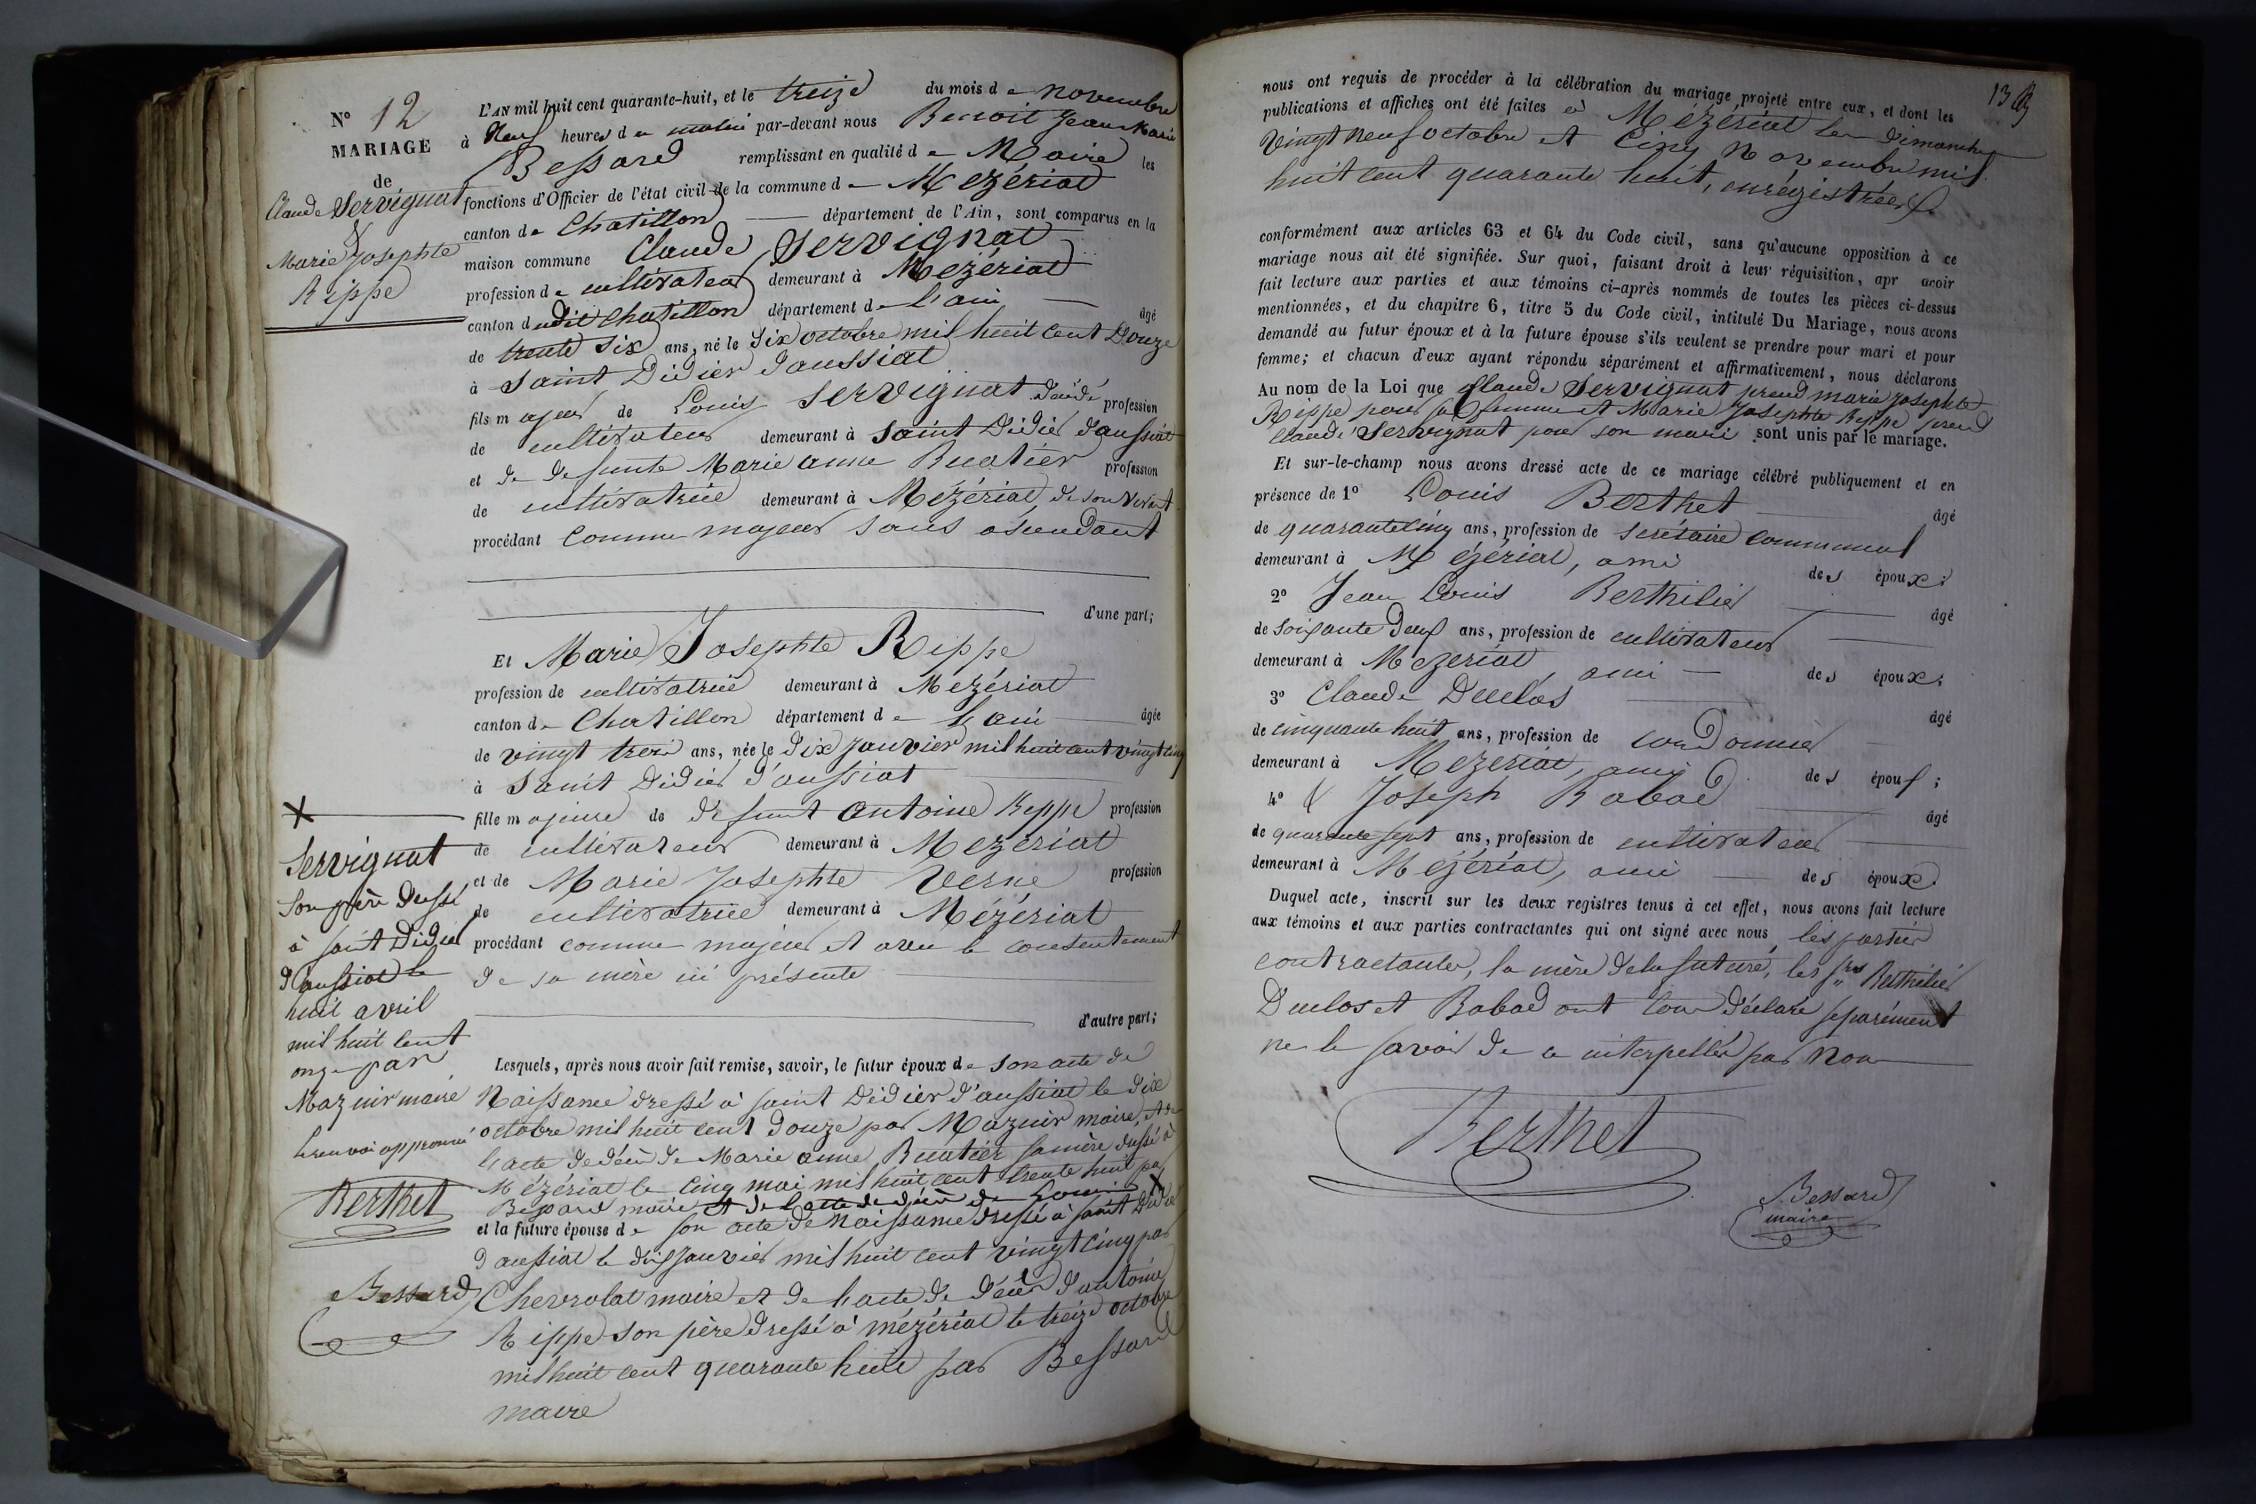 N° 12
MARIAGE
de
Claude Servignat
&
Marie Josephte
Rippe
L'AN mil huit cent quarante-huit, et le treize du mois de novembre
à Neuf heures du matin par-devant nous Benoit Jean Marie
Bessard remplissant en qualité de Maire les
fonctions d'Officier de l'état civil de la commune de Mézériat
canton de Chatillon département de l'Ain, sont comparus en la
maison commune Claude Servignat
profession de cultivateur demeurant à Mézériat
canton dudit Chatillon département de L'ain âgé
de trente six ans, né le dix octobre mil huit cent Douze
à Saint Didier d'aussiat
fils majeur de Louis Servignat décédé profession
de cultivateur demeurant à Saint Didier d'aussiat
et de defunte Marie anne Buatier profession
de cultivatrice demeurant à Mézériat, de son vivant
procédant comme majeur sans ascendant
d'une part;
Et Marie Josephte Rippe
profession de cultivatrice demeurant à Mézériat
canton de Chatillon département de L'ain âgée
de vingt trois ans, née le dix janvier mil huit cent vingt cinq
à Saint Didier d'aussiat
fille majeure de défunt antoine Rippe profession
de cultivateur demeurant à Mézériat
et de Marie Josephte Verne profession
de cultivatrice demeurant à Mézériat
procédant comme majeur et avec le consentement
de sa mère ici présente
d'autre part;
Lesquels, après nous avoir fait remise, savoir, le futur époux de son acte de
Naissance dressé à saint Didier d'aussiat le dix
octobre mil huit cent Douze par Mazuir maire, et de
l'acte de décès de Marie anne Buatier sa mère dressé à
Mézériat le cinq mai mil huit cent trente huit par
Bessard maire et de l'acte de décès de Louis X
et la future épouse de son acte de Naissance dressé à saint Didier
d'aussiat le dix janvier mil huit cent vingt cinq par
Chevrolat maire et de l'acte de décès d'antoine
Rippe son père dressé à mézériat le treize octobre
mil huit cent quarante huit par Bessard
maire
X
Servignat
son père dressé
à saint Didier
d'aussiat le
huit avril
mil huit cent
onze par
Mazuir maire
le renvoi approuvé
Berthet
Bessard
13
nous ont requis de procéder à la célébration du mariage projeté entre eux, et dont les
publications et affiches ont été faites à Mézériat les dimanches
vingt neuf octobre et cinq Novembre mil
huit cent quarante huit, enrégistrées
conformément aux articles 63 et 64 du Code civil, sans qu'aucune opposition à ce
mariage nous ait été signifiée. Sur quoi, faisant droit à leur réquisition, apr avoir
fait lecture aux parties et aux témoins ci-après nommés de toutes les pièces ci-dessus
mentionnées, et du chapitre 6, titre 5 du Code civil, intitulé Du Mariage, nous avons
demandé au futur époux et à la future épouse s'ils veulent se prendre pour mari et pour
femme; et chacun d'eux ayant répondu séparément et affirmativement, nous déclarons
Au nom de la Loi que Claude Servignat prend marie josephte
Rippe pour sa femme et Marie Josephte Rippe prend
Claude Servignat pour son mari sont unis par le mariage.
Et sur-le-champ nous avons dressé acte de ce mariage célébré publiquement et en
présence de 1° Louis Berthet âgé
de quarante cinq ans, profession de secrétaire communal
demeurant à Mézériat, ami des époux;
2° Jean Louis Berthilier âgé
de soixante deux ans, profession de cultivateur
demeurant à Mézériat, ami des époux;
3° Claude Duclos âgé
de cinquante huit ans, profession de cordonnier
demeurant à Mézériat, ami des époux;
4° & Joseph Rabad âgé
de quarante sept ans, profession de cultivateur
demeurant à Mézériat, ami des époux.
Duquel acte, inscrit sur les deux registres tenus à cet effet, nous avons fait lecture
aux témoins et aux parties contractantes qui ont signé avec nous, les parties
contractantes, la mère de la future, les srs Berthilier
Duclos et Rabad ont tous déclaré séparément
ne le savoir de ce interpellés par Nous
Berthet
Bessard
maire